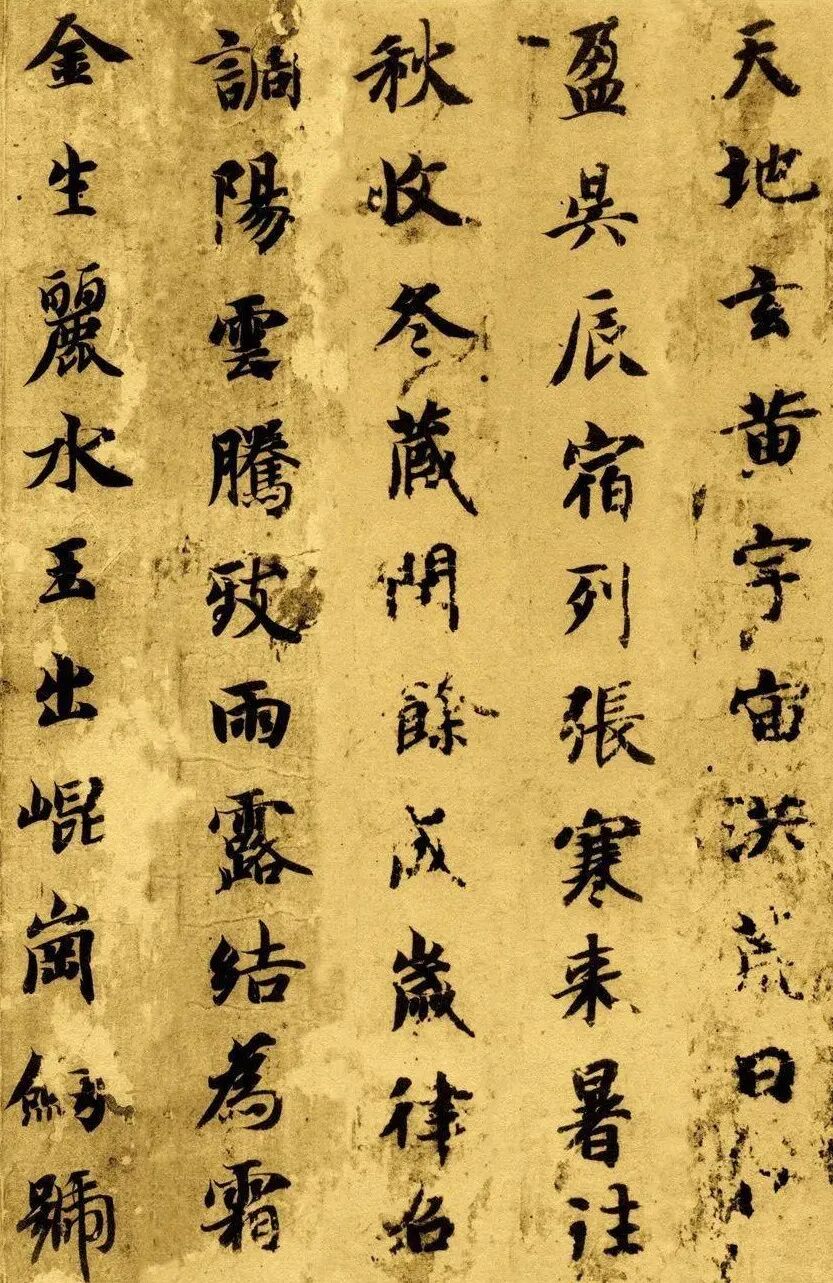 天地玄黄宇宙洪荒日
盈昃辰宿列張寒来暑往
秋收冬蔵閏餘成歲律召
調陽雲騰致雨露結為霜
金生麗水玉出崐崗劔號